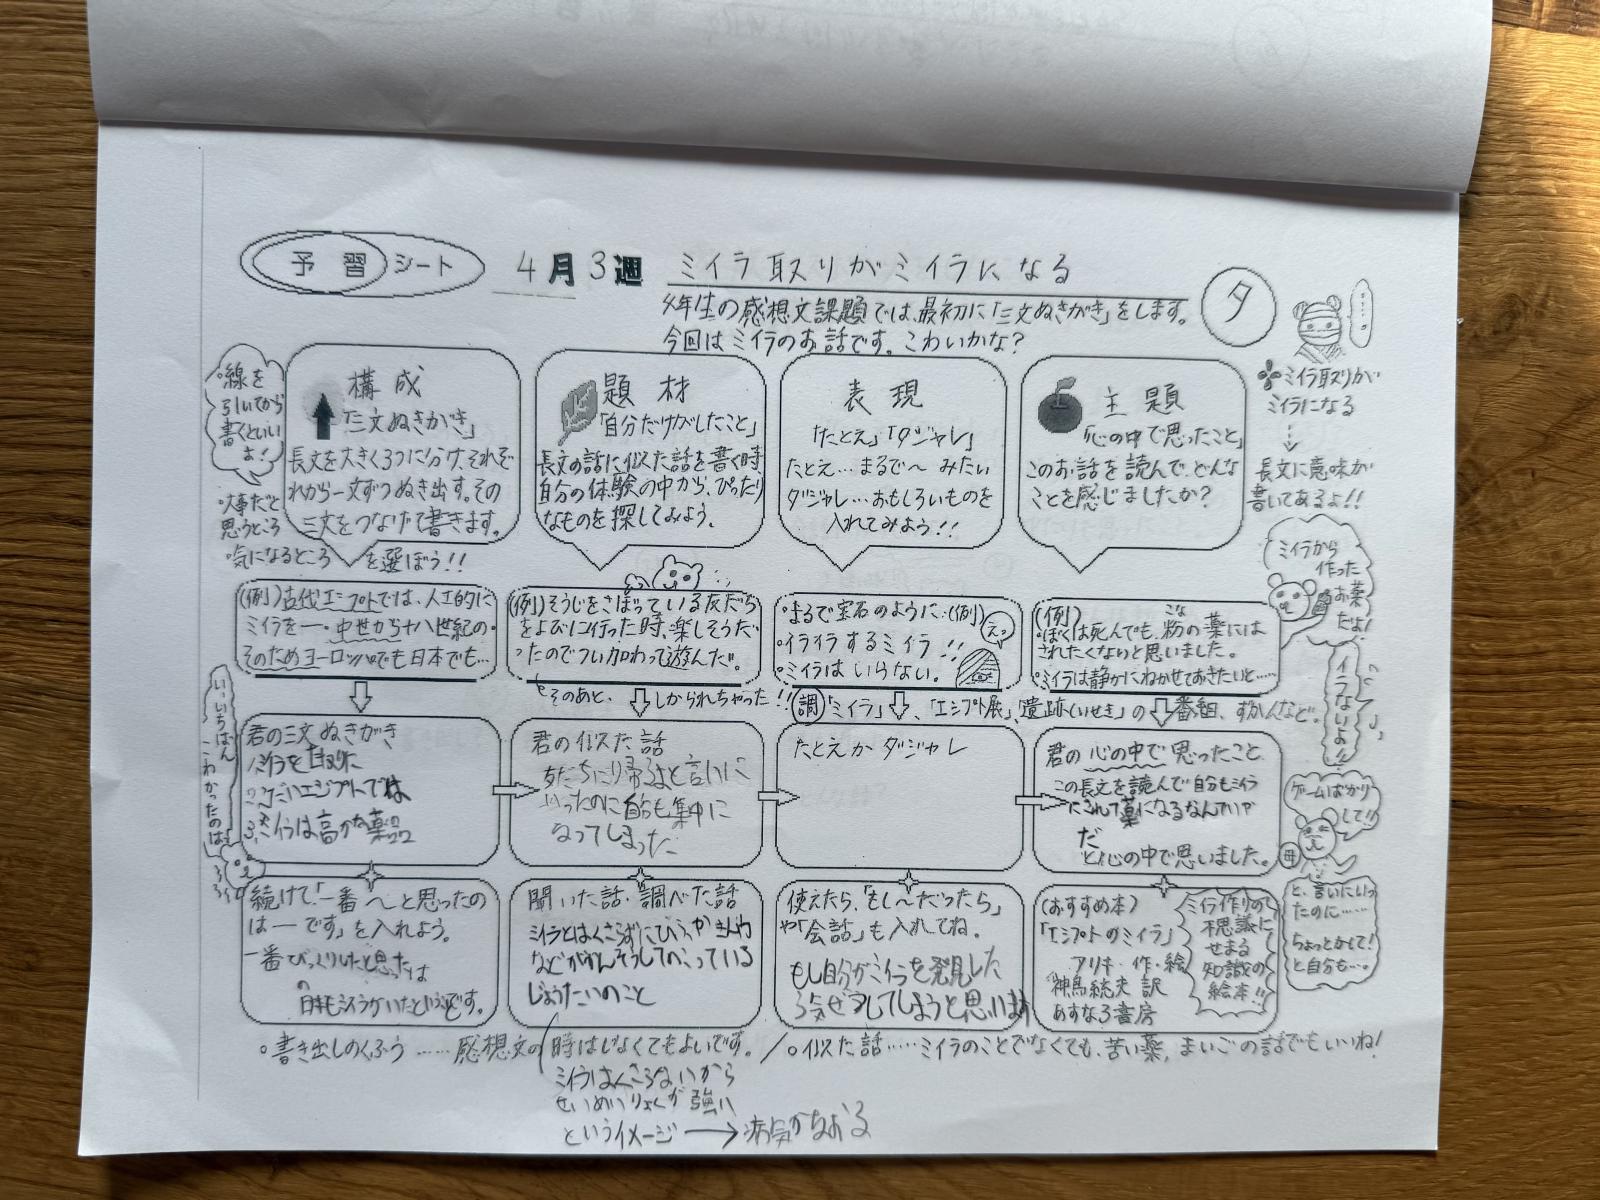 予習シート 4月3週 ミイラ取りがミイラになる
4年生の感想文課題では、最初に「三文ぬきがき」をします。
今回はミイラのお話です。こわいかな?
タ
・線を
引いてから
書くといい
よ!
・大事だと
思うところ
・気になるところ を選ぼう!!
構成
「三文ぬきがき」
長文を大きく3つに分け、それぞ
れから一文ずつぬき出す。その
三文をつなげて書きます。
題材
「自分だけがしたこと」
長文の話に似た話を書く時、
自分の体験の中から、ぴったり
なものを探してみよう。
表現
「たとえ」「ダジャレ」
たとえ…まるで〜みたい
ダジャレ…おもしろいものを
入れてみよう!!
主題
「心の中で思ったこと」
このお話を読んで、どんな
ことを感じましたか?
ミイラ取りが
ミイラになる
長文に意味が
書いてあるよ!!
ミイラから
作った
お薬
だよ!
(例)古代エジプトでは、人工的に
ミイラを―・中世から十八世紀の・
そのためヨーロッパでも日本でも…
(例)そうじをさぼっている友だち
をよびに行った時、楽しそうだ
ったのでつい加わって遊んだ。
そのあと、しかられちゃった!!
・まるで宝石のように・(例)
・イライラするミイラ!!
・ミイラはいらない。
えっ
(例)
・ぼくは死んでも、粉の薬には
こな
されたくないと思いました。
・ミイラは静かにねかせておきたいと……
調「ミイラ」、「エジプト展」、「遺跡(いせき)」の番組、ずかんなど。
イラないよ!!
い・いちばん
こわかったのは
君の三文ぬきがき
君の似た話
友だちに帰るよと言いに
いったのに自分も集中に
なってしまった
たとえかダジャレ
君の心の中で思ったこと
この長文を読んで自分もミイラ
にされて薬になるなんていや
だ
と心の中で思いました。
ゲームばかり
して!!
母
と、言いにいっ
たのに……
ちょっとかして!
と自分も…。
続けて「一番〜と思ったの
は―です」を入れよう。
一番びっくりしたと思ったは
の
日本もミイラがいたというです。
聞いた話・調べた話
ミイラとはくさらずにひふ、か
などがかんそうしてのこっている
じょうたいのこと
使えたら、「もし〜だったら」
や「会話」も入れてね。
もし自分がミイラを発見した
ら気ぜつしてしまうと思います
(おすすめ本)
「エジプトのミイラ」
アリキ・作・絵
神鳥統夫 訳
あすなろ書房
ミイラ作りの
不思議に
せまる
知識の
絵本!!
・書き出しのくふう……感想文の時はしなくてもよいです。/・似た話……ミイラのことでなくても、苦い薬、まいごの話でもいいね!
ミイラはくさらないから
せいめいりょくが強い
というイメージ→病気がなおる